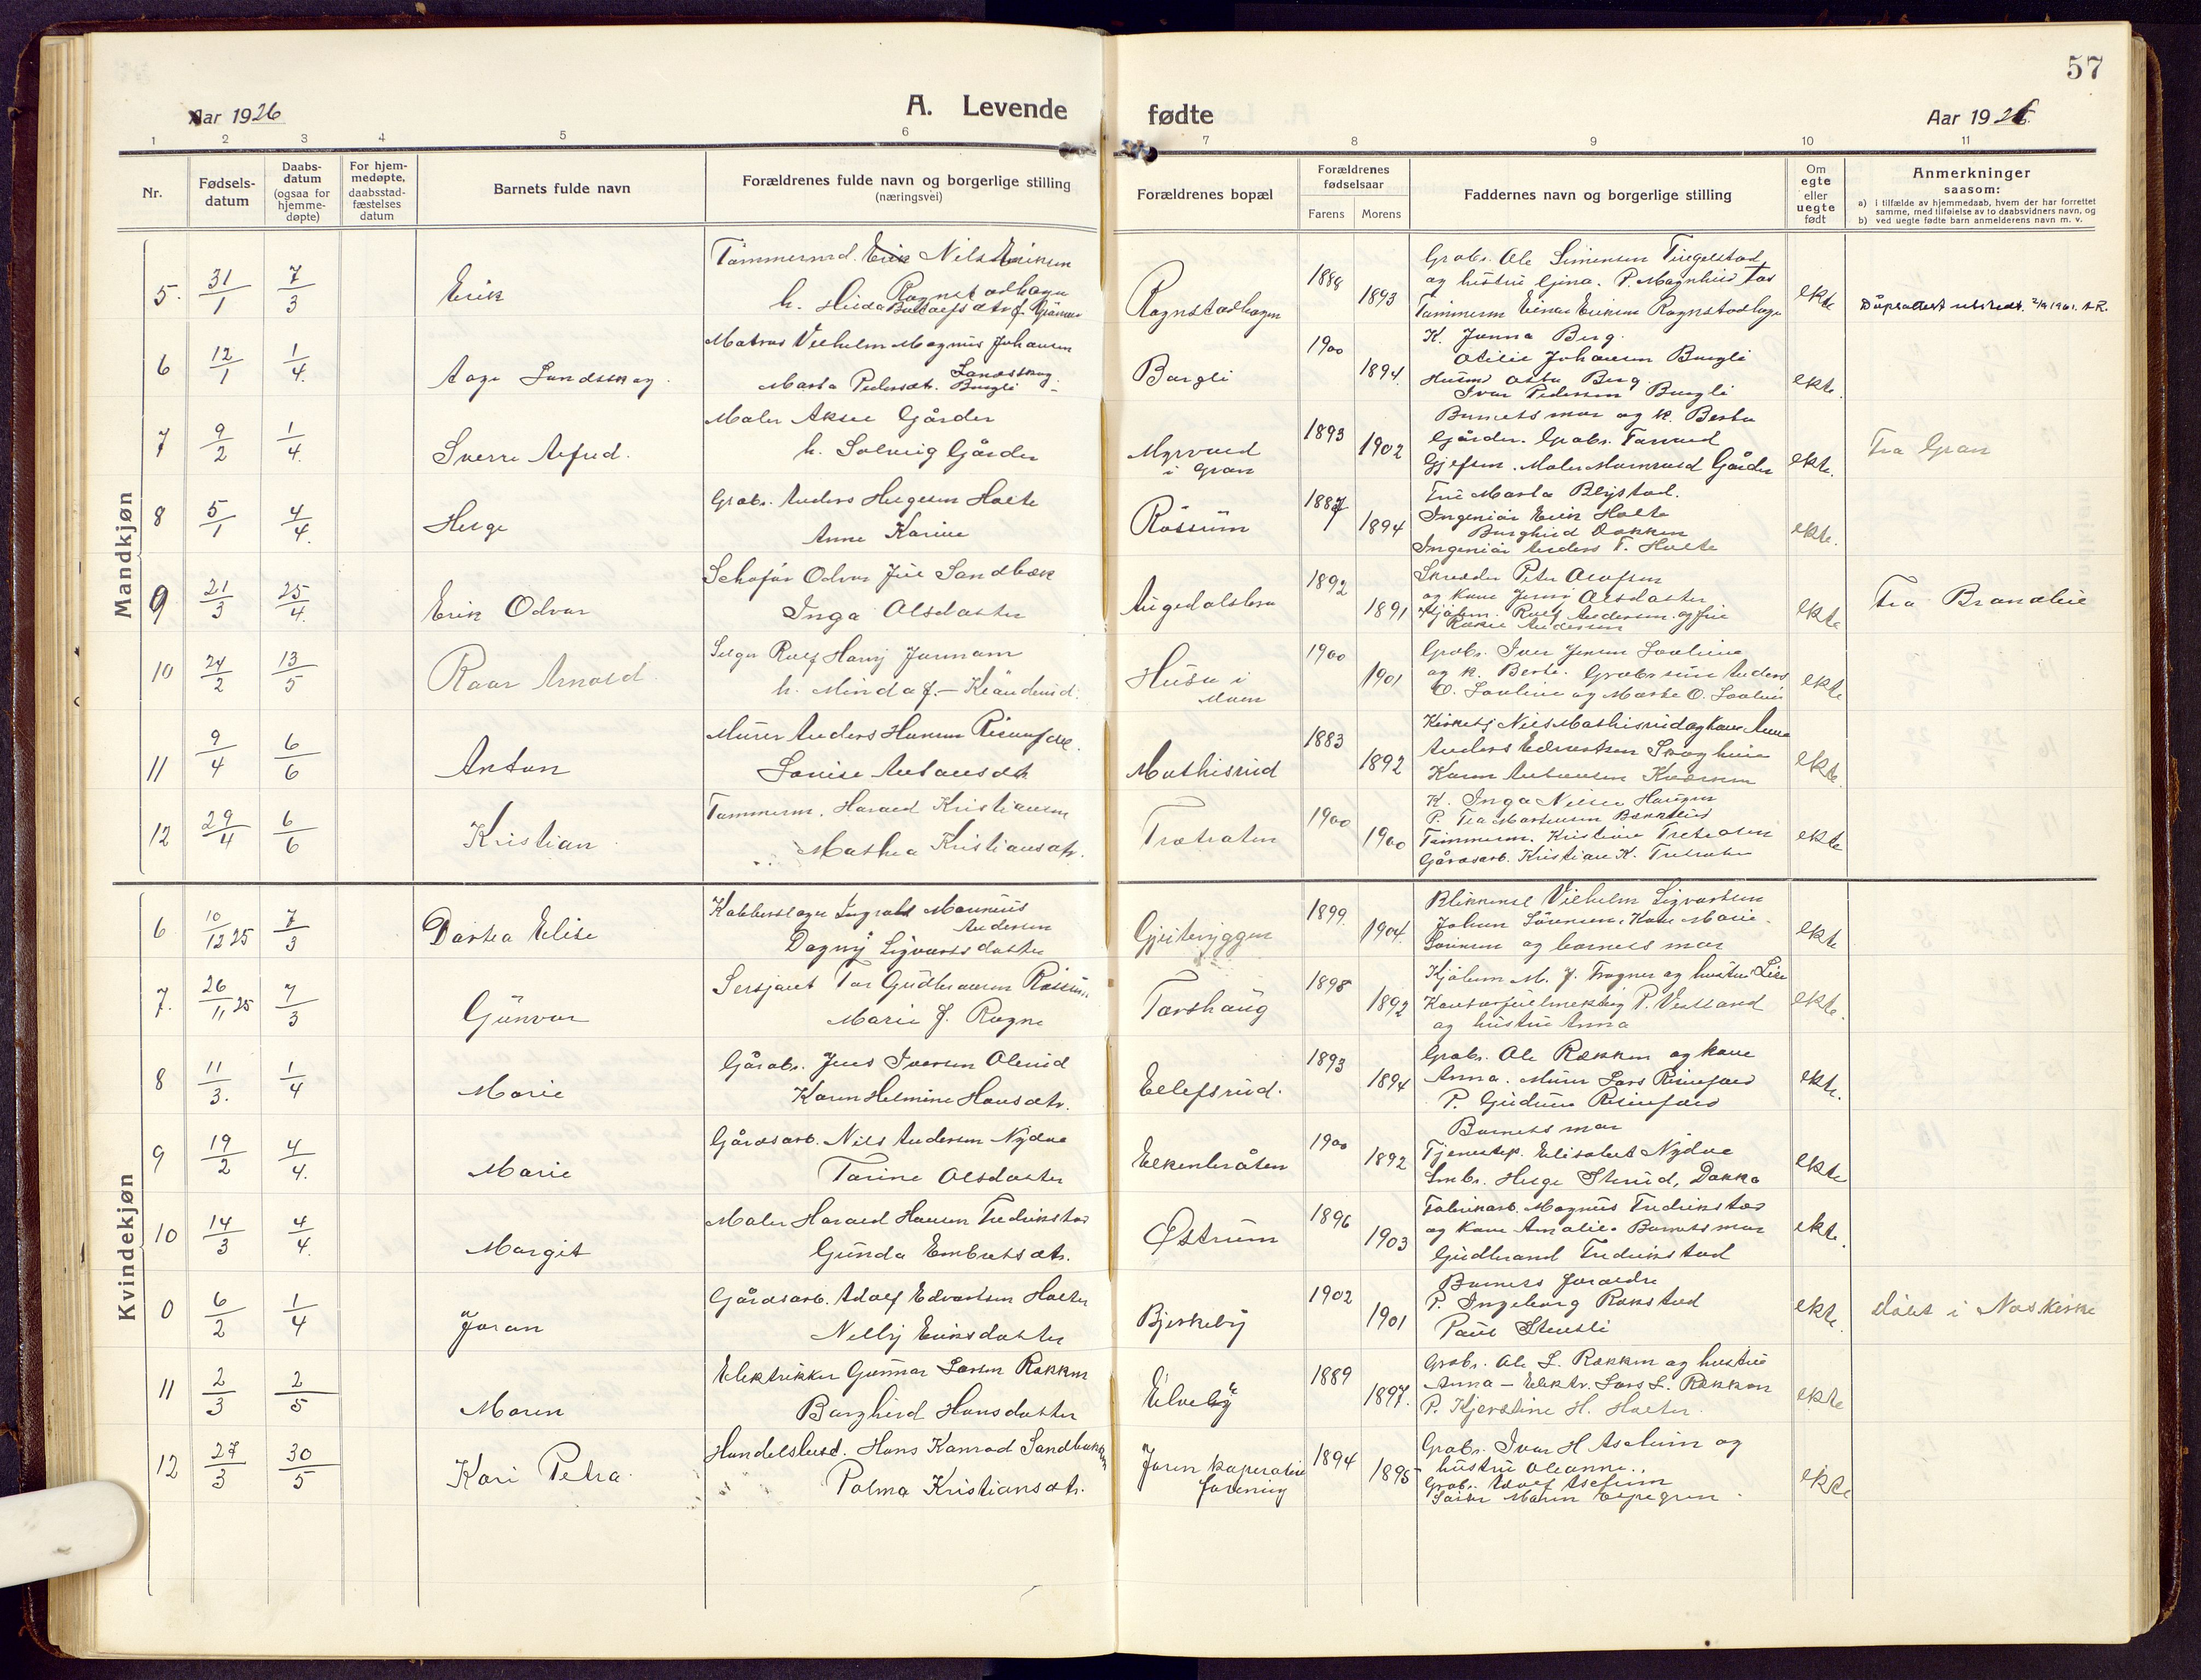 57
Aar 1926
A. Levende
fødte
Aar 1926.
1 2 3 4 5 6 7 8 9 10 11
Nr.
Fødsels-
datum
Daabs-
datum
(ogsaa for
hjemme-
døpte)
For hjem-
medøpte,
daabsstad-
fæstelses
datum
Barnets fulde navn
Forældrenes fulde navn og borgerlige stilling
(næringsvei)
Forældrenes bopæl
Forældrenes
fødselsaar
Farens Morens
Faddernes navn og borgerlige stilling
Om
egte
eller
uegte
født
Anmerkninger
saasom:
a) i tilfælde av hjemmedaab, hvem der har forrettet
samme, med tilføielse av to daabsvidners navn, og
b) ved uegte fødte barn anmelderens navn m. v.
Mandkjøn
5. 31/1 7/3
Erik
Tømmermd. Erik Nils Eriksen
Rognstadhagen
Rognstadhagen
1888 1893
Grabr. Ole Simensen Tingelstad
og hustru Gina.
Tømmerm Einar Eriksen Rognstadhagen
ekte
Dåpsattest utstedt. 2/9 1961. A.R.
6 12/1 1/4.
Aage Landsskog.
Matros Vilhelm Magnus Johansen
Landsskog
Marta Pedersdt. Burgli
Borgli
1900 1894.
K. Janna Berg.
Otilie Johansen Burgli
Otto Berg.
Ivar Pedersen Burgli
ekte.
7 9/2 1/4.
Sverre Alfred.
Maler Aksel Gårder
h. Solveig Gårder
Myrvold
i Gran
1893 1902
Barnets mor og k. Berta
Gårder. Grabr.
Gjefsen. Maler Gårder
ekte.
Fra Gran
8 5/1 4/4.
Helge
Grabr. Anders Helgesen Holte
Anne Karine
Røssum
1887 1894
Fru Marta Blystad.
Ingeniør Erik Holte
Borghild Dokken
Ingeniør Anders T. Holte
ekte.
9 21/3 25/4.
Erik Odvar
Schafør Odvar Juel Sandbæk
Inga Olsdatter
Augedalsbro
1892 1891
Skrædder Peter Olafsen
og kone Jenny Olsdatter
Hjalm. Rolf Andersen og frue
Andersen
ekte
Fra Brandbu
10 24/2 13/5
Roar Arnold.
Selger Rolf Harry Jormann
h. Minda f. - Klanderud.
Husu i
Moen
1900 1901
Grabr. Iver Jensen Lovlien
og k. Berte. Grabr sønn Anders
O. Lovlien og Marte O. Lovlien
ekte
11 9/4 6/6
Anton
Murer Anders Hansen Risenfald.
Lovise Antonsdt.
Mathisrud
1883 1892
Kirketj Nils Mathisrud og kone Anna
Anders Edvardsen Skogheim
Karen Antonsen Kværnen
ekte.
12 29/4 6/6
Kristian
Tømmerm. Harald Kristiansen
Mathea Kristiansdt.
Trætraten
1900 1900
K. Inga Nilsen Haugen
P. Tea Martinsen
Tømmerm. Kristian Tretraten
Gårdsarb. Kristian K. Tretraten
ekte
Kvindekjøn
6 10/12 25 7/3
Dortea Elise
Kobberslager Ingvald Marinius
Andersen
Dagny Sigvartsdatter
Gjeiteryggen
1899. 1904.
Blikkensl Vilhelm Sigvartsen
Johan Sørensen, Kone Marie
Sørensen og barnets mor
ekte
7. 26/11 25 7/3
Gunvor
Sersjant Tor Gudbransen Røssum
Marie f. Rogne
Torshaug
1898 1892
Kjøbm M. J. Frogner og hustru Lise
P. Vestland
og hustru Anna
ekte.
8 11/3. 1/4
Marie
Gårdbr. Jens Iversen Olerud
Karen Helmine Hansdtr.
Ellefsrud.
1893 1894
Grabr. Ole Rækken og kone
Anna. Murer Lars Risenfald
P. Gudrun Risenfald
ekte.
9 19/2 4/4.
Marie
Gårdsarb. Nils Andersen Nydne
Torine Olsdatter
Elkenbråten
1900 1892
Barnets mor
Tjenestep. Elisabet Nydne
Smbr. Helge Sterud, Dokka
ekte
10 14/3 4/4.
Margit
Maler Harald Hansen Fredrikstad
Gunda Embretsdtr.
Østrum
1896 1903
Fabrikarb. Magnus Fredrikstad
og kone Amalie. Barnets mor
Gudbrand Fredrikstad
ekte.
0 6/2 1/4
Jøran
Gårdsarb. Adolf Edvartsen Holter
Nelly Eriksdatter
Bjerkeby
1902 1901
Barnets foreldre
P. Ingeborg Rokstad
Paul Stensli
ekte.
døbt i Næs kirke
11 2/3 2/5
Maren
Elektriker Gunnar Larsen Rækken
Borghild Hansdatter
Elveby
1889 1897.
Grabr. Ole L. Rækken og hustru
Anna - Elektr. Lars L. Rækken
P. Kjerstine H. Holter.
ekte
12 27/3 30/5
Kari Petra.
Handelsbest. Hans Konrad Sandbakken
Palma Kristiansdtr.
Jaren koperative
forening
1894 1895
Grabr. Ivar H Aschim og
hustru Oleanne.
Grabr. Adolf Aschim
Maren
ekte